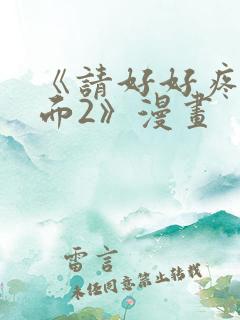 《請好好疼
而2》漫畫
雷言
未经同意禁止转载